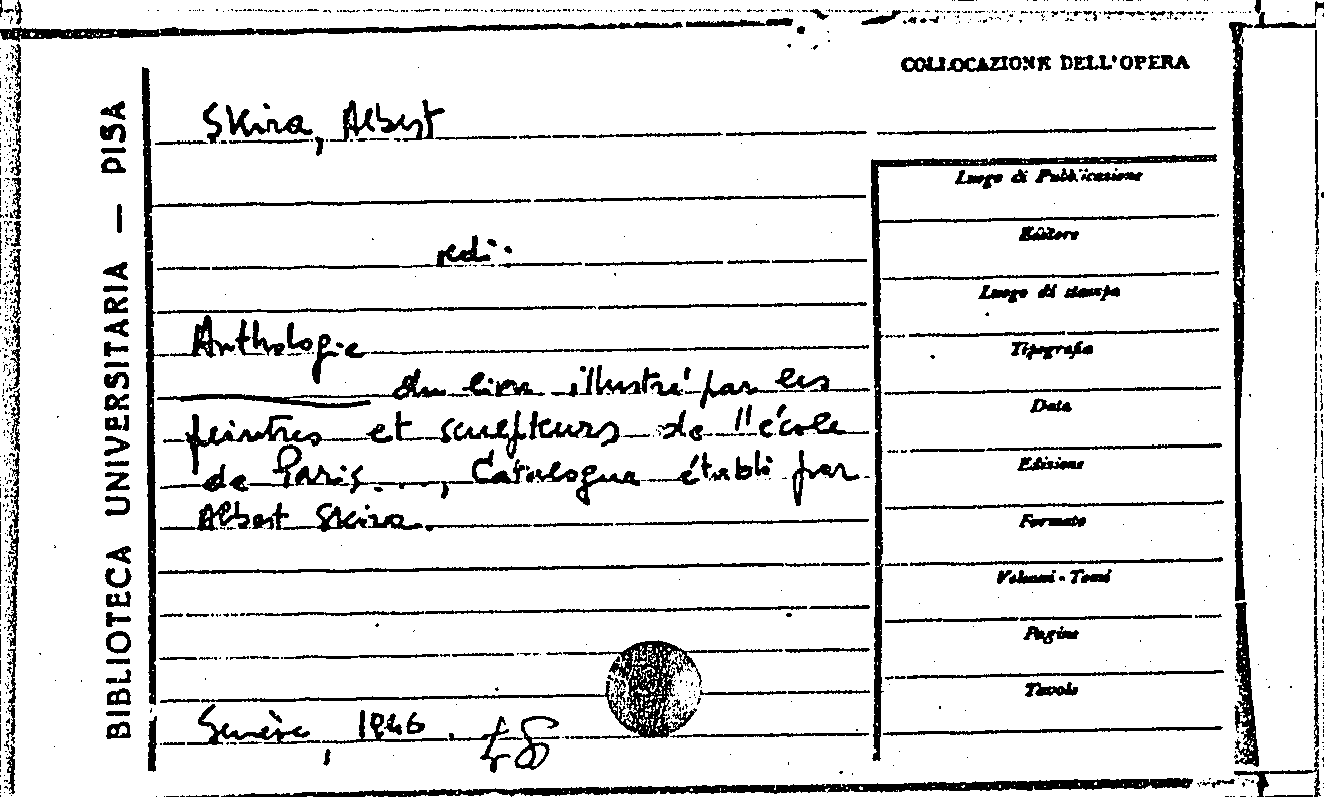 COLLOCAZIONE DELL'OPERA
BIBLIOTECA UNIVERSITARIA — PISA
Skira, Albert
vedi:
Anthologie
du livre illustré par les
peintres et sculpteurs de l'école
de Paris...., Catalogue établi par
Albert Skira.
Genève, 1946.
Luogo di Pubblicazione
Editore
Luogo di stampa
Tipografia
Data
Edizione
Formato
Volumi - Tomi
Pagine
Tavole